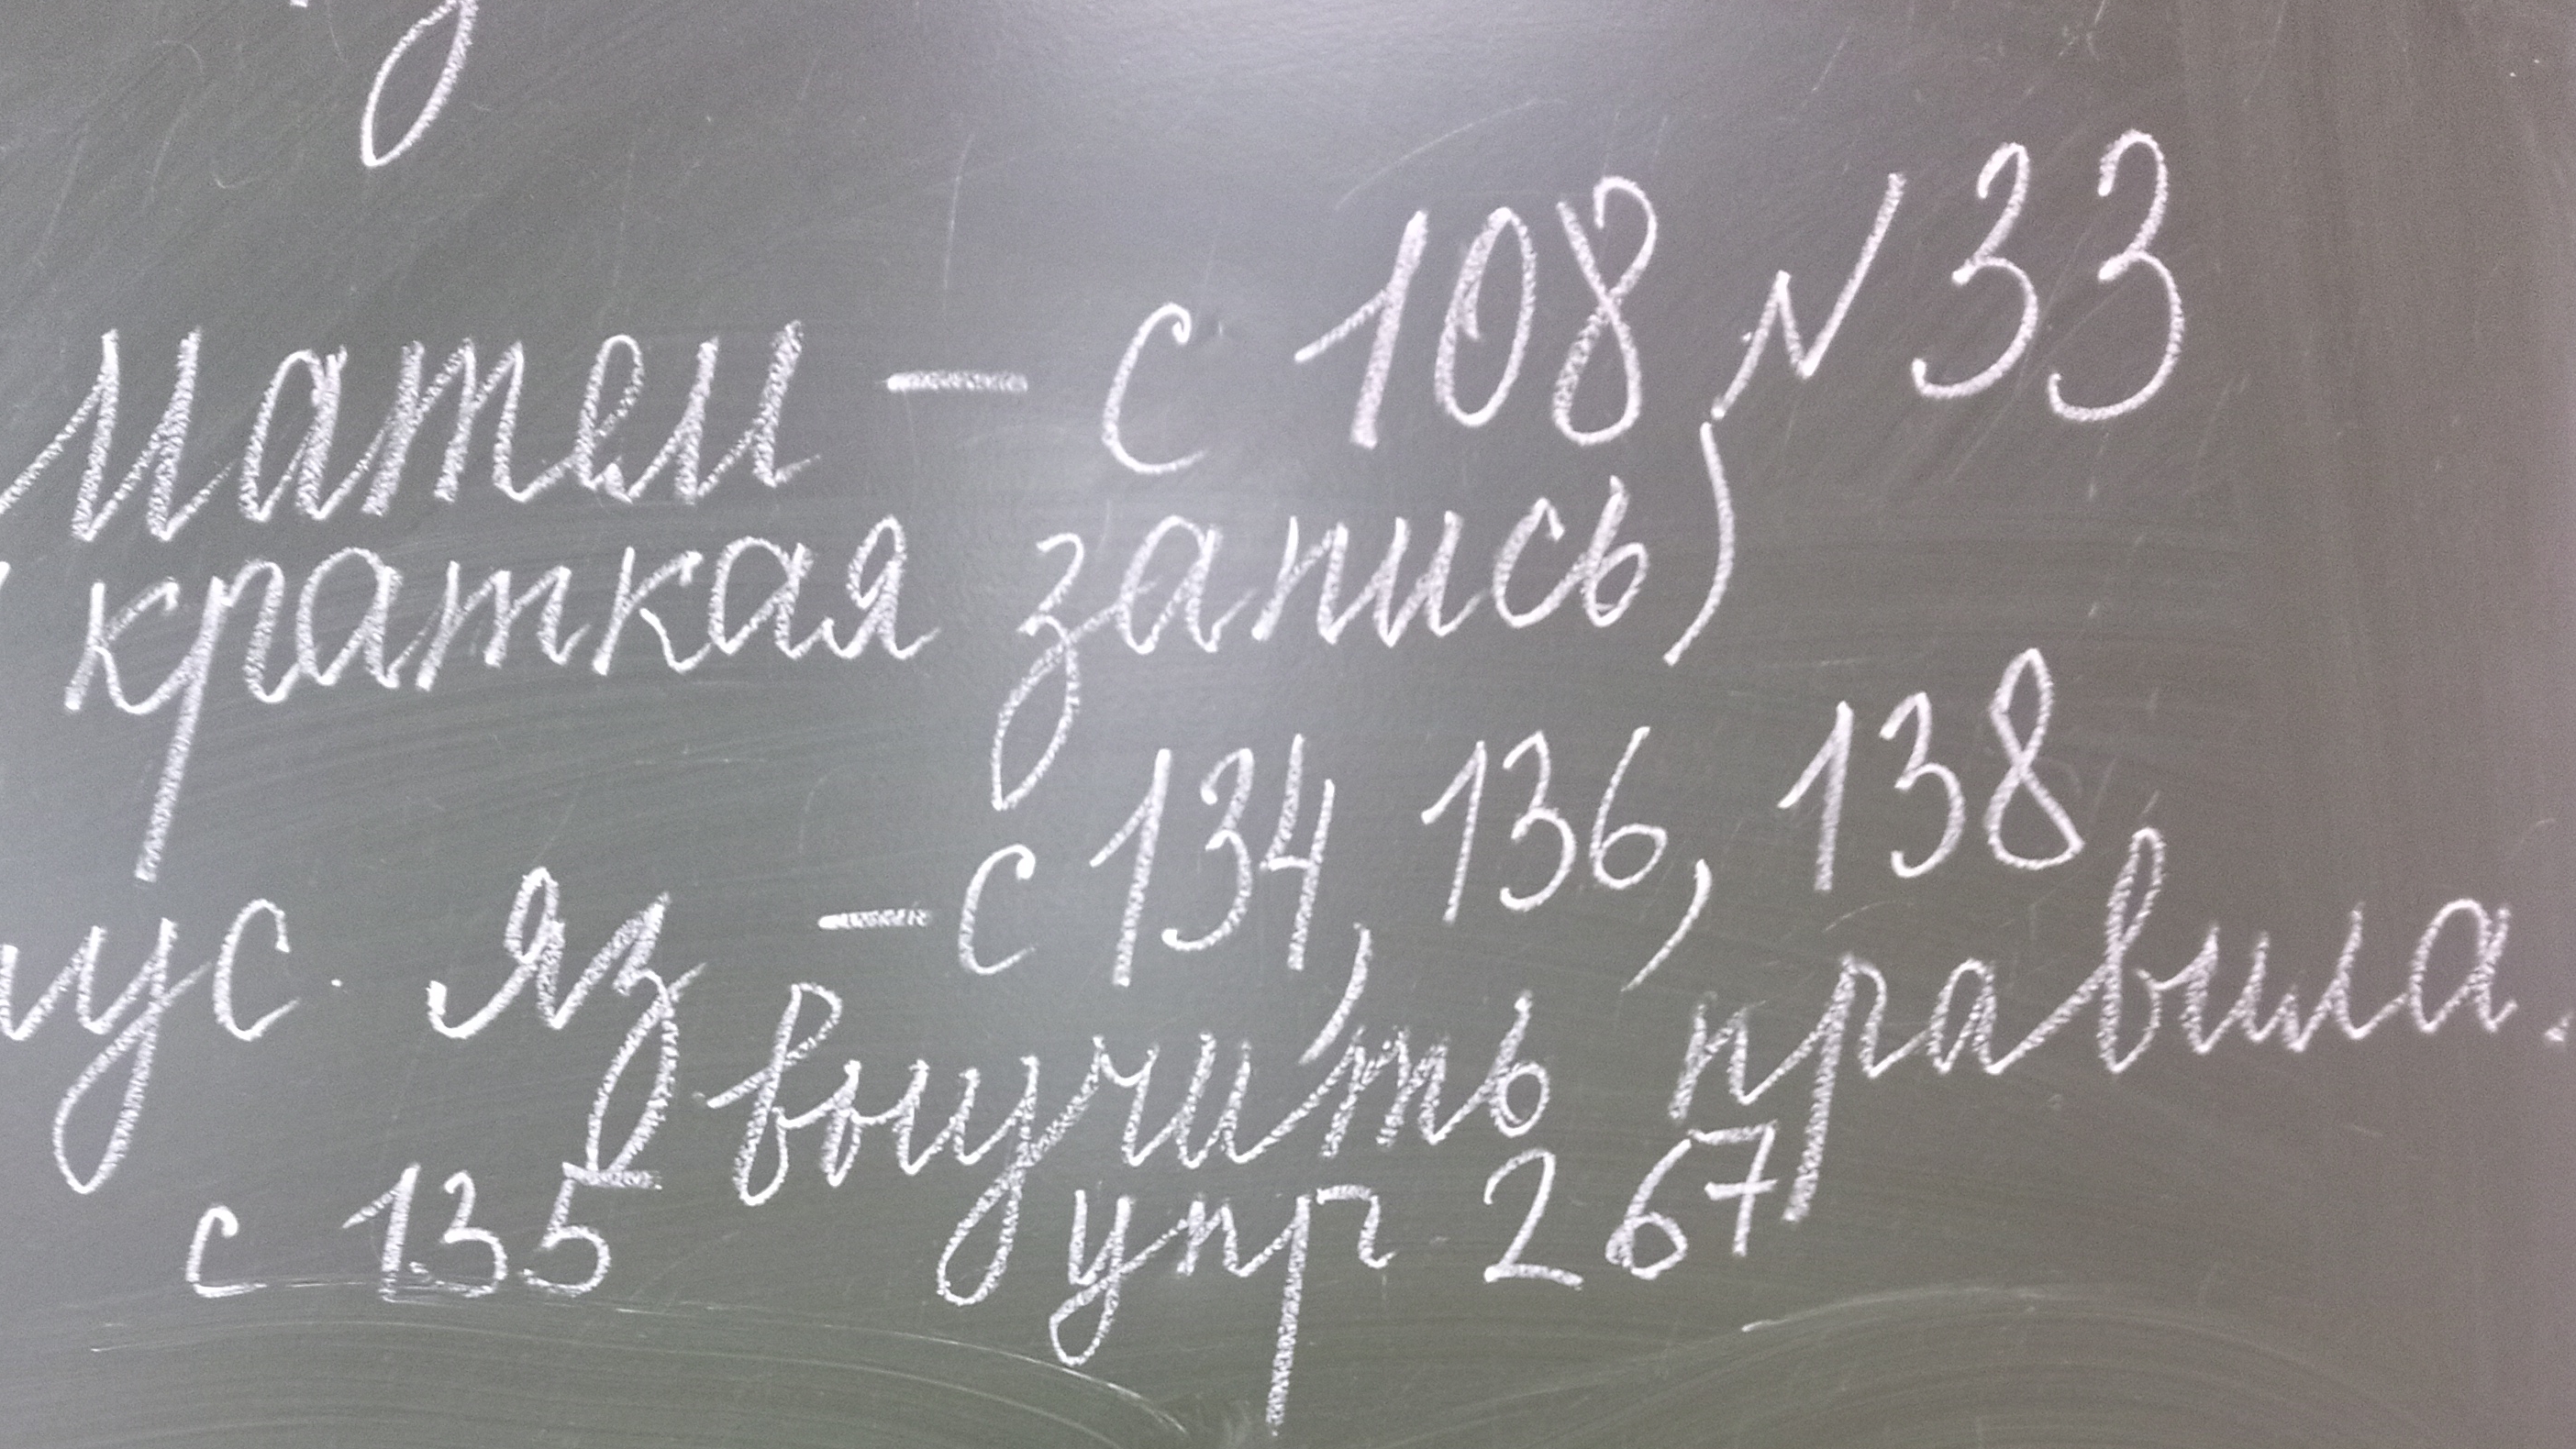 Матем - с 108 № 33
(краткая запись)
рус. яз - с 134, 136, 138
выучить правила.
с 135 упр 267